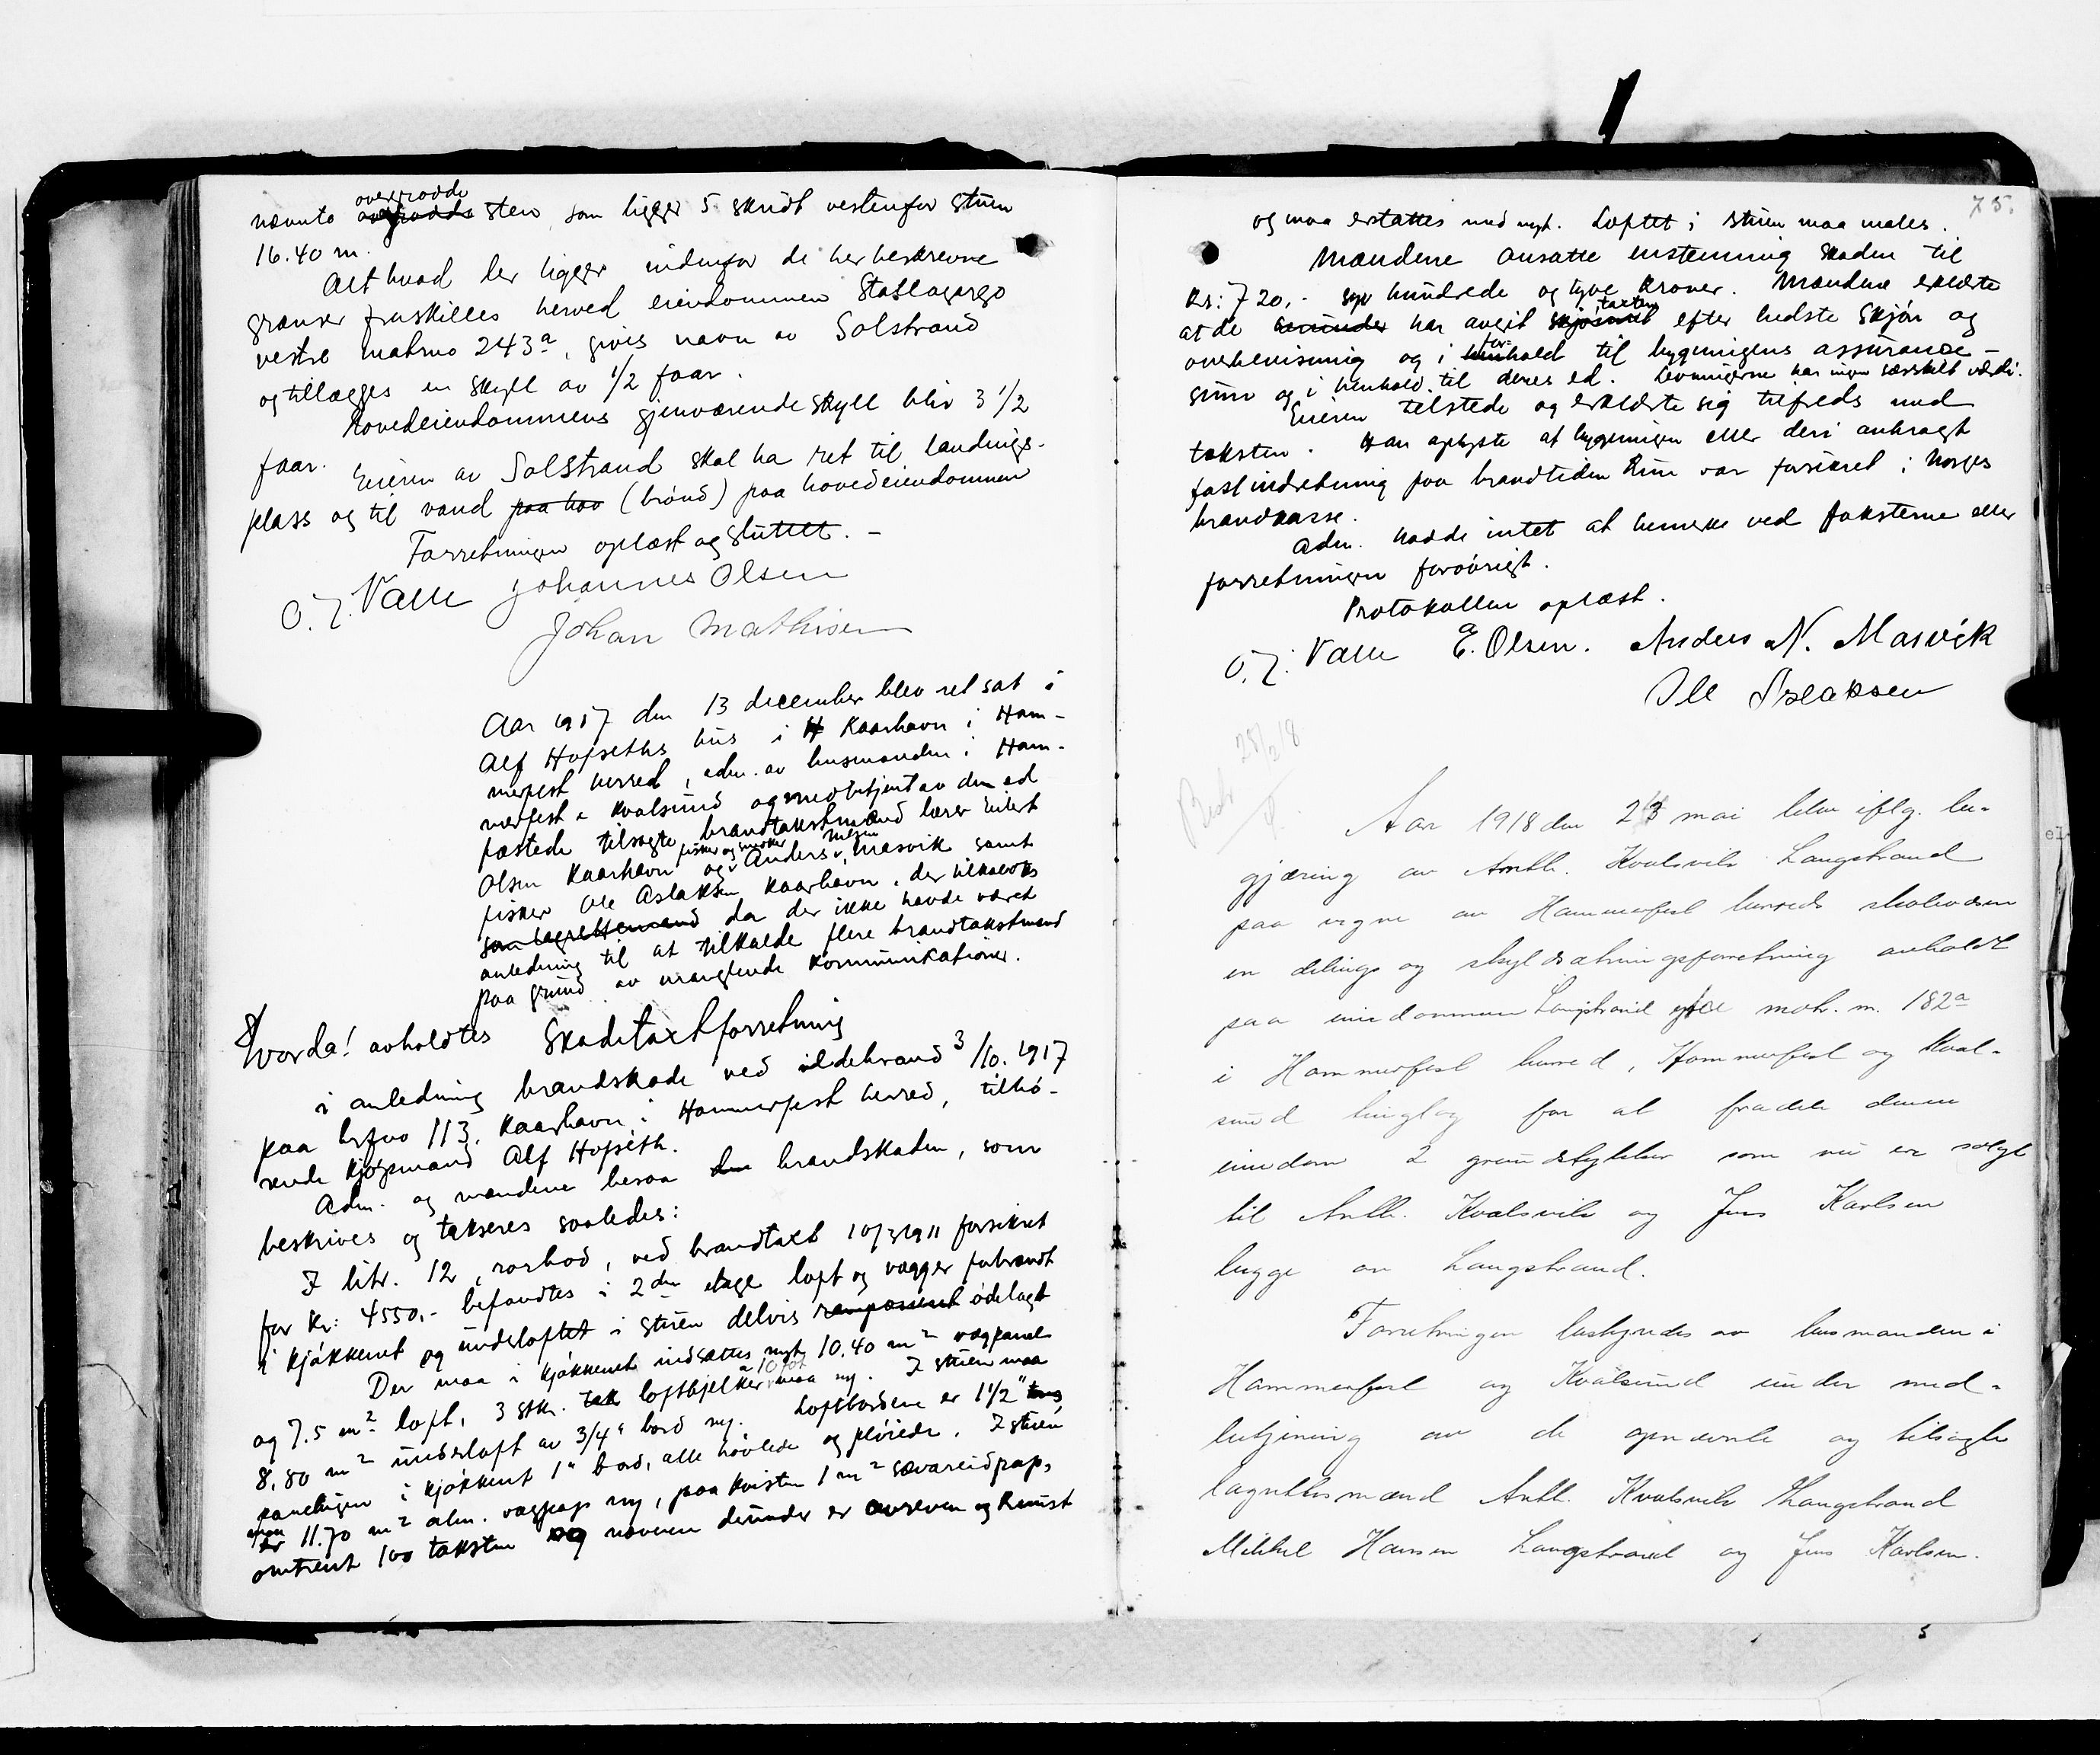 nævnte overgrodde sten, som ligger 5 skridt vestenfor stuen
16.40 m.
Alt hvad der ligger indenfor de her beskrevne
grænser fraskilles herved eiendommen Stallogargo
vestre matrno 243a, gives navn av Solstrand
og tillægges en skyll av 1/2 faar.
Hovedeiendommens gjenværende skyll blir 3 1/2
faar.
Eieren av Solstrand skal ha ret til landings-
plass og til vand paa hov (brønd) paa hovedeiendommen
Forretningen oplæst og sluttet. -
O. J. Valle Johannes Olsen
Johan Mathisen
Aar 1917 den 13 december blev ret sat i
Alf Hofseths hus i H Kaarhavn i Ham-
merfest herred, adm. av lensmanden i Ham-
merfest & Kvalsund og medbetjent av de ed
fæstede tilsagte brandtakstmænd lærer Eilert
Olsen Kaarhavn og fisker og snekker Anders Nilsen Masvik samt
fisker Ole Aslaksen Kaarhavn, der tilkaldtes
som lagrettemand da der ikke havde været
anledning til at tilkalde flere brandtakstmænd
paa grund av manglende kommunikationer.
Hvorda! avholdtes Skadetaxtforretning
i anledning brandskade ved ildebrand 3/10. 1917
paa brfno 113, Kaarhavn i Hammerfest herred, tilhø-
rende kjøpmand Alf Hofseth.
Adm. og mændene besaa den brandskaden, som
beskrives og takseres saaledes:
I litr. 12, rorbod, ved brandtaxt 10/3 1911 forsikret
for kr: 4550,- befandtes i 2den etage loft og vægger forbrændt
i kjøkkenet og underloftet i stuen delvis ramponert ødelagt
Der maa i kjøkkenet indsættes nyt 10.40 m² vægpanel
og 7.5 m² loft, 3 stk. tak loftbjelker a 10 fot maa ny. I stuen maa
8.80 m² underloft av 3/4" bord ny. Loftbordene er 1 1/2"
panelingen i kjøkkenet 1" bord, alle høvlede og pløiede. I stuen
11.70 m² alm. vægpap ny, paa kvisten 1 m² sævareidpap,
omtrent 100 taksten og næveren derunder er avreven og knust
75.
og maa erstattes med nyt. Loftet i stuen maa males.
Mændene ansatte enstemmig skaden til
kr: 720,- syv hundrede og tyve kroner. Mændene erklærte
at de herunder har avgit skjønnet taxten efter bedste skjøn og
overbevisning og i henhold forhold til bygningens assurance-
sum og i henhold til deres ed. Levningerne har ingen særskilt værdi.
Eieren tilstede og erklærte sig tilfreds med
taksten. Han oplyste at bygningen eller deri anbragt
fast indretning paa brandtiden kun var forsikret i Norges
brandkasse.
Adm. hadde intet at bemerke ved taksterne eller
forretningen forøvrigt.
Protokollen oplæst.
O. J. Valle E. Olsen. Anders N. Masvik
Ole Aslaksen
Aar 1918 den 23 mai blev iflg. be-
gjæring av Anth. Kvalsvik Langstrand
paa vegne av Hammerfest herreds skolevæsen
en delings og skyldsætningsforretning avholdt
paa eiendommen Langstrand ydre matr. nr. 182a
i Hammerfest herred, Hammerfest og Kval-
sund tinglag for at fradele denne
eiendom 2 grundstykker som nu er solgt
til Anth. Kvalsvik og Jens Karlsen
begge av Langstrand.
Forretningen bestyredes av lensmanden i
Hammerfest og Kvalsund under med-
betjening av de opnævnte og tilsagte
lagrettesmænd Anth. Kvalsvik Langstrand
Mikkel Hansen Langstrand og Jens Karlsen.